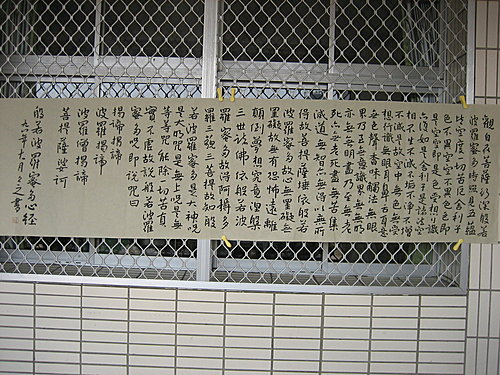 觀自在菩薩行深般若
波羅蜜多時照見五蘊
皆空度一切苦厄舍利子
色不異空空不異色色即
是空空即是色受想行識
亦復如是舍利子是諸法空
相不生不滅不垢不淨不增
不減是故空中無色無受
想行識無眼耳鼻舌身意
無色聲香味觸法無眼
界乃至無意識界無無明
亦無無明盡乃至無老
死亦無老死盡無苦集
滅道無智亦無得以無所
得故菩提薩埵依般若
波羅蜜多故心無罣礙無
罣礙故無有恐怖遠離
顛倒夢想究竟涅槃
三世諸佛依般若波
羅蜜多故得阿耨多
羅三藐三菩提故知般
若波羅蜜多是大神咒
是大明咒是無上咒是無
等等咒能除一切苦真
實不虛故說般若波羅
蜜多咒即說咒曰
揭諦揭諦
波羅揭諦
波羅僧揭諦
菩提薩婆訶
般若波羅蜜多心經